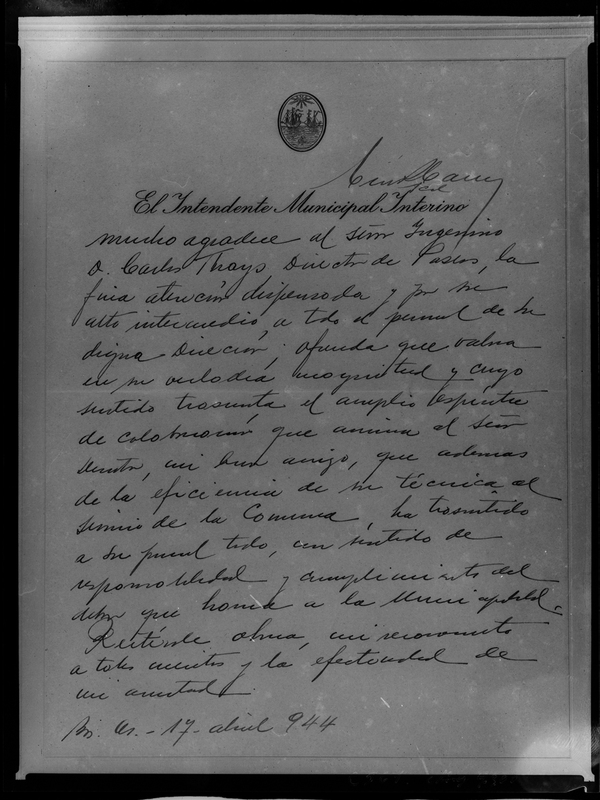 El Intendente Municipal Interino
mucho agradece al señor Ingeniero
D. Carlos Thays, Director de Paseos, la
fina atención dispensada y por su
alto intermedio, a todo el personal de su
digna Dirección; ofrenda que valora
en su verdadera magnitud y cuyo
sentido trasunta el amplio espíritu
de colaboración que anima al señor
Director, mi buen amigo, que además
de la eficiencia de su técnica al
servicio de la Comuna, ha trasmitido
a su personal todo, un sentido de
responsabilidad y cumplimiento del
deber que honra a la Municipalidad.
mi reconocimiento
a todos y la efectividad de
mi amistad.
Bs. As. - 17 - abril 944